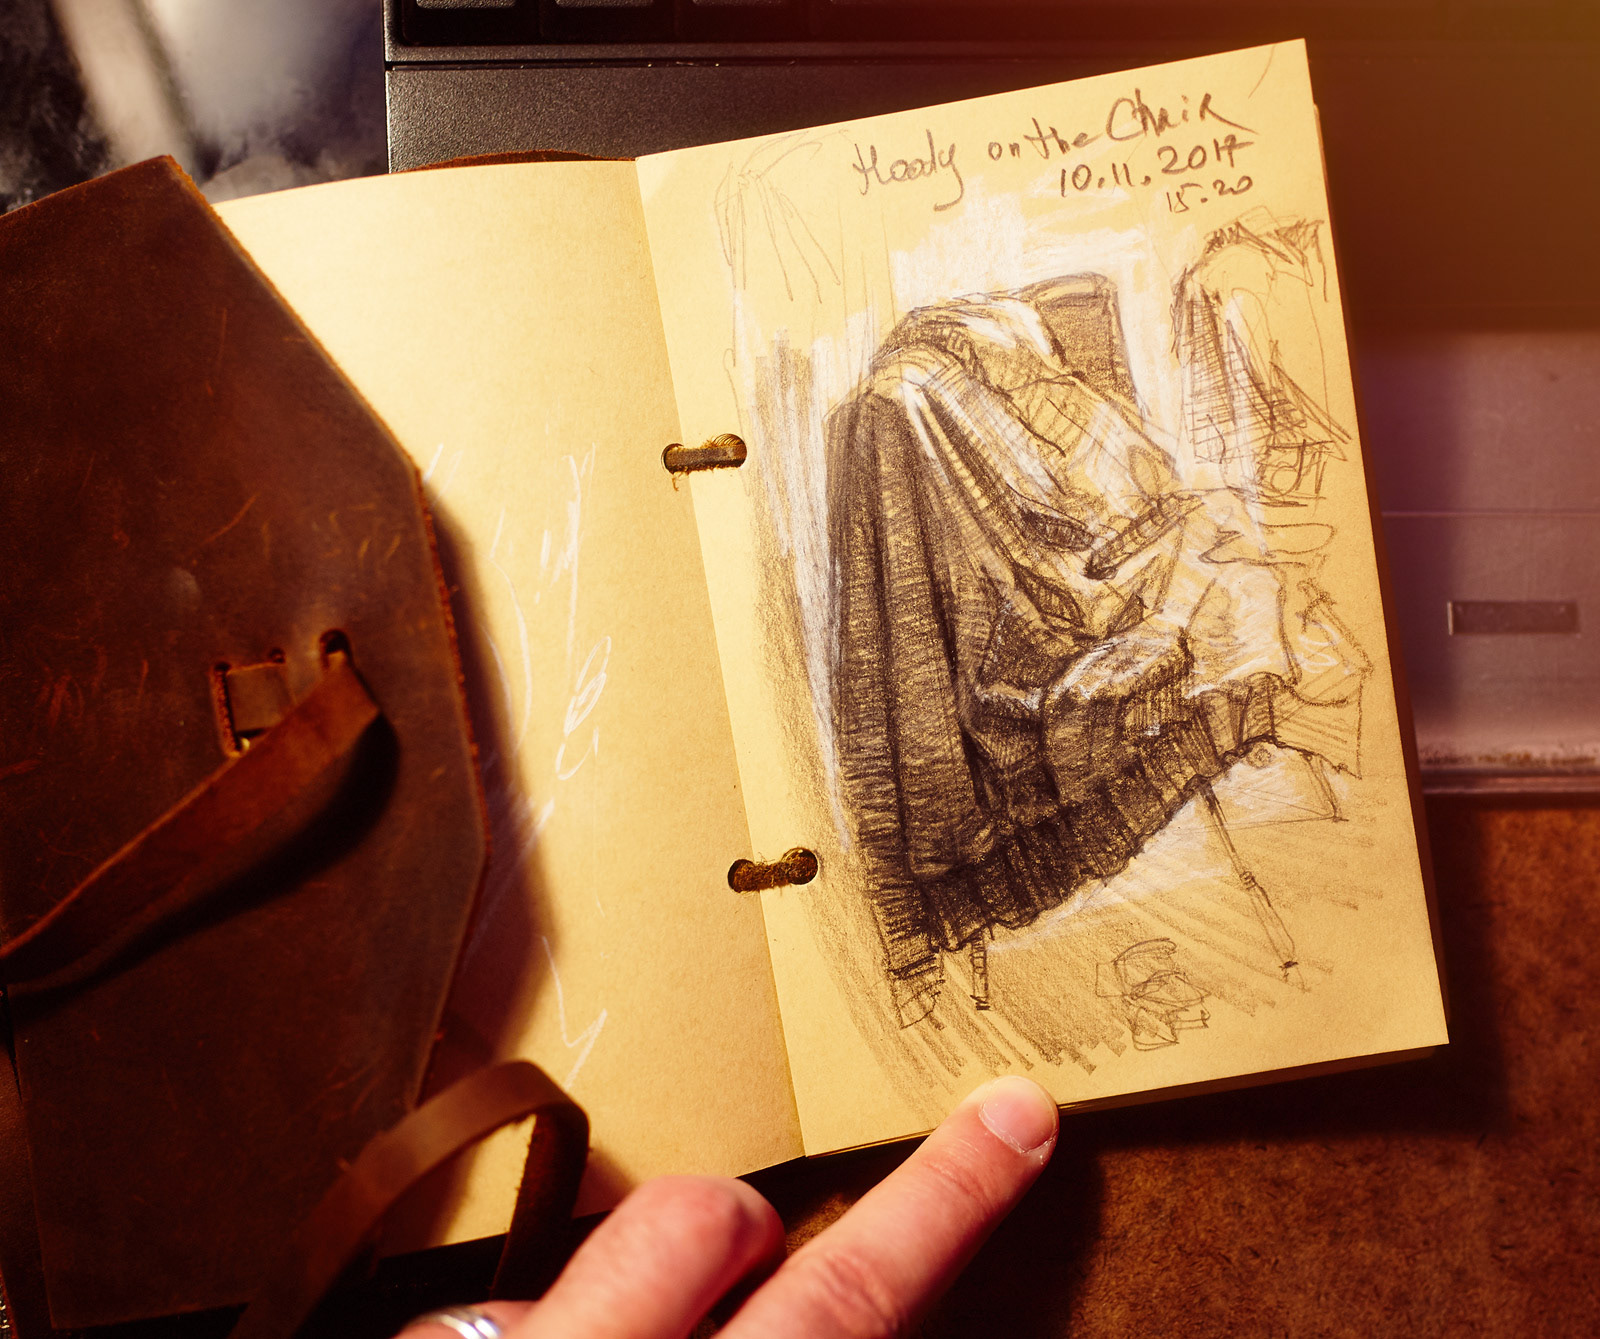 Hoody on the Chair
10.11.2017
15.20